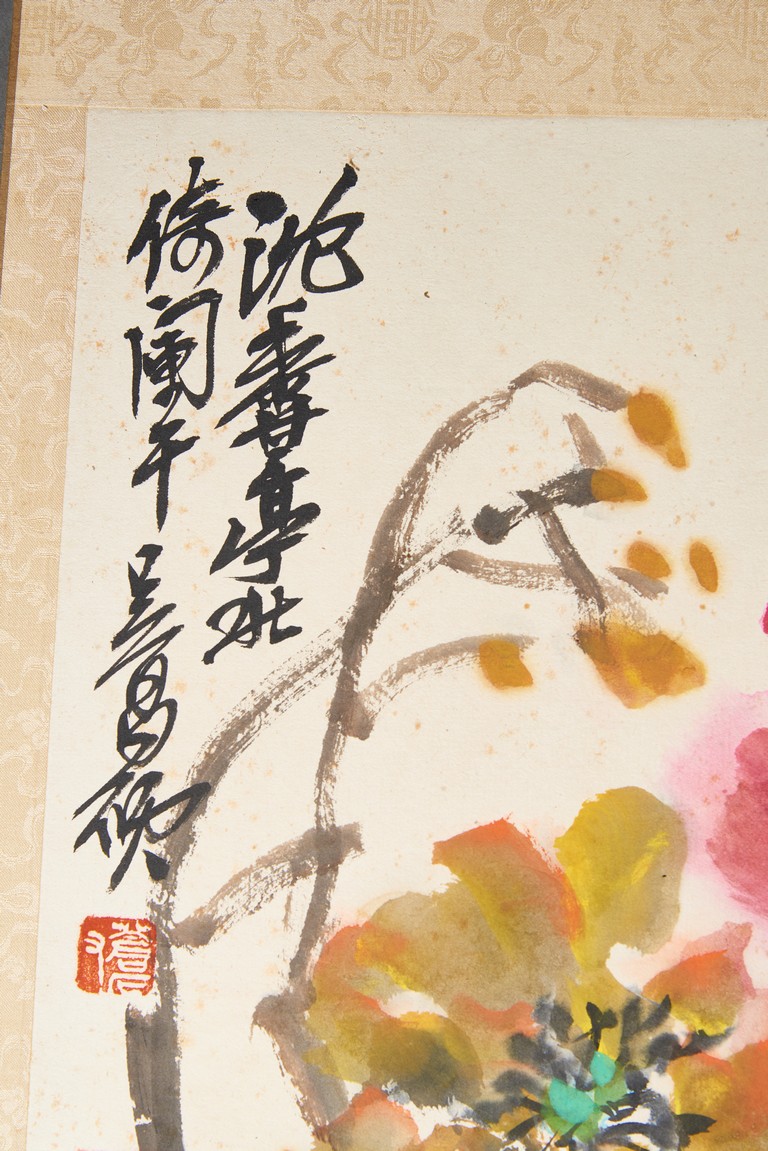 沈香亭北
倚闌干 吳昌碩